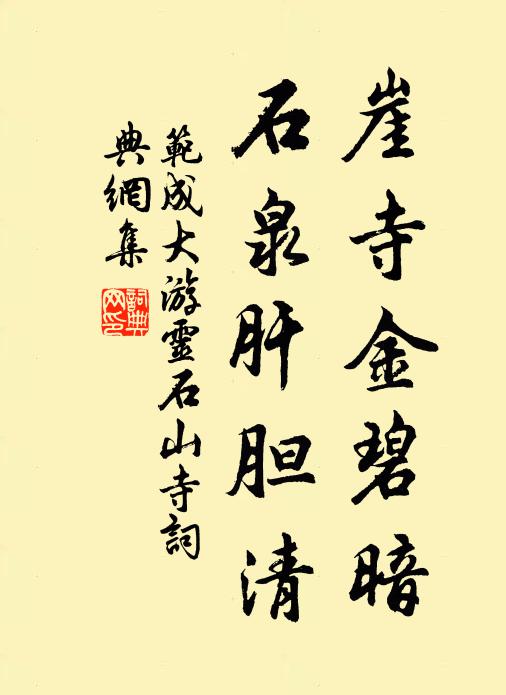 崖寺金碧暗
石泉肝胆清
範成大游靈石山寺詞
典網集
詞典
网印